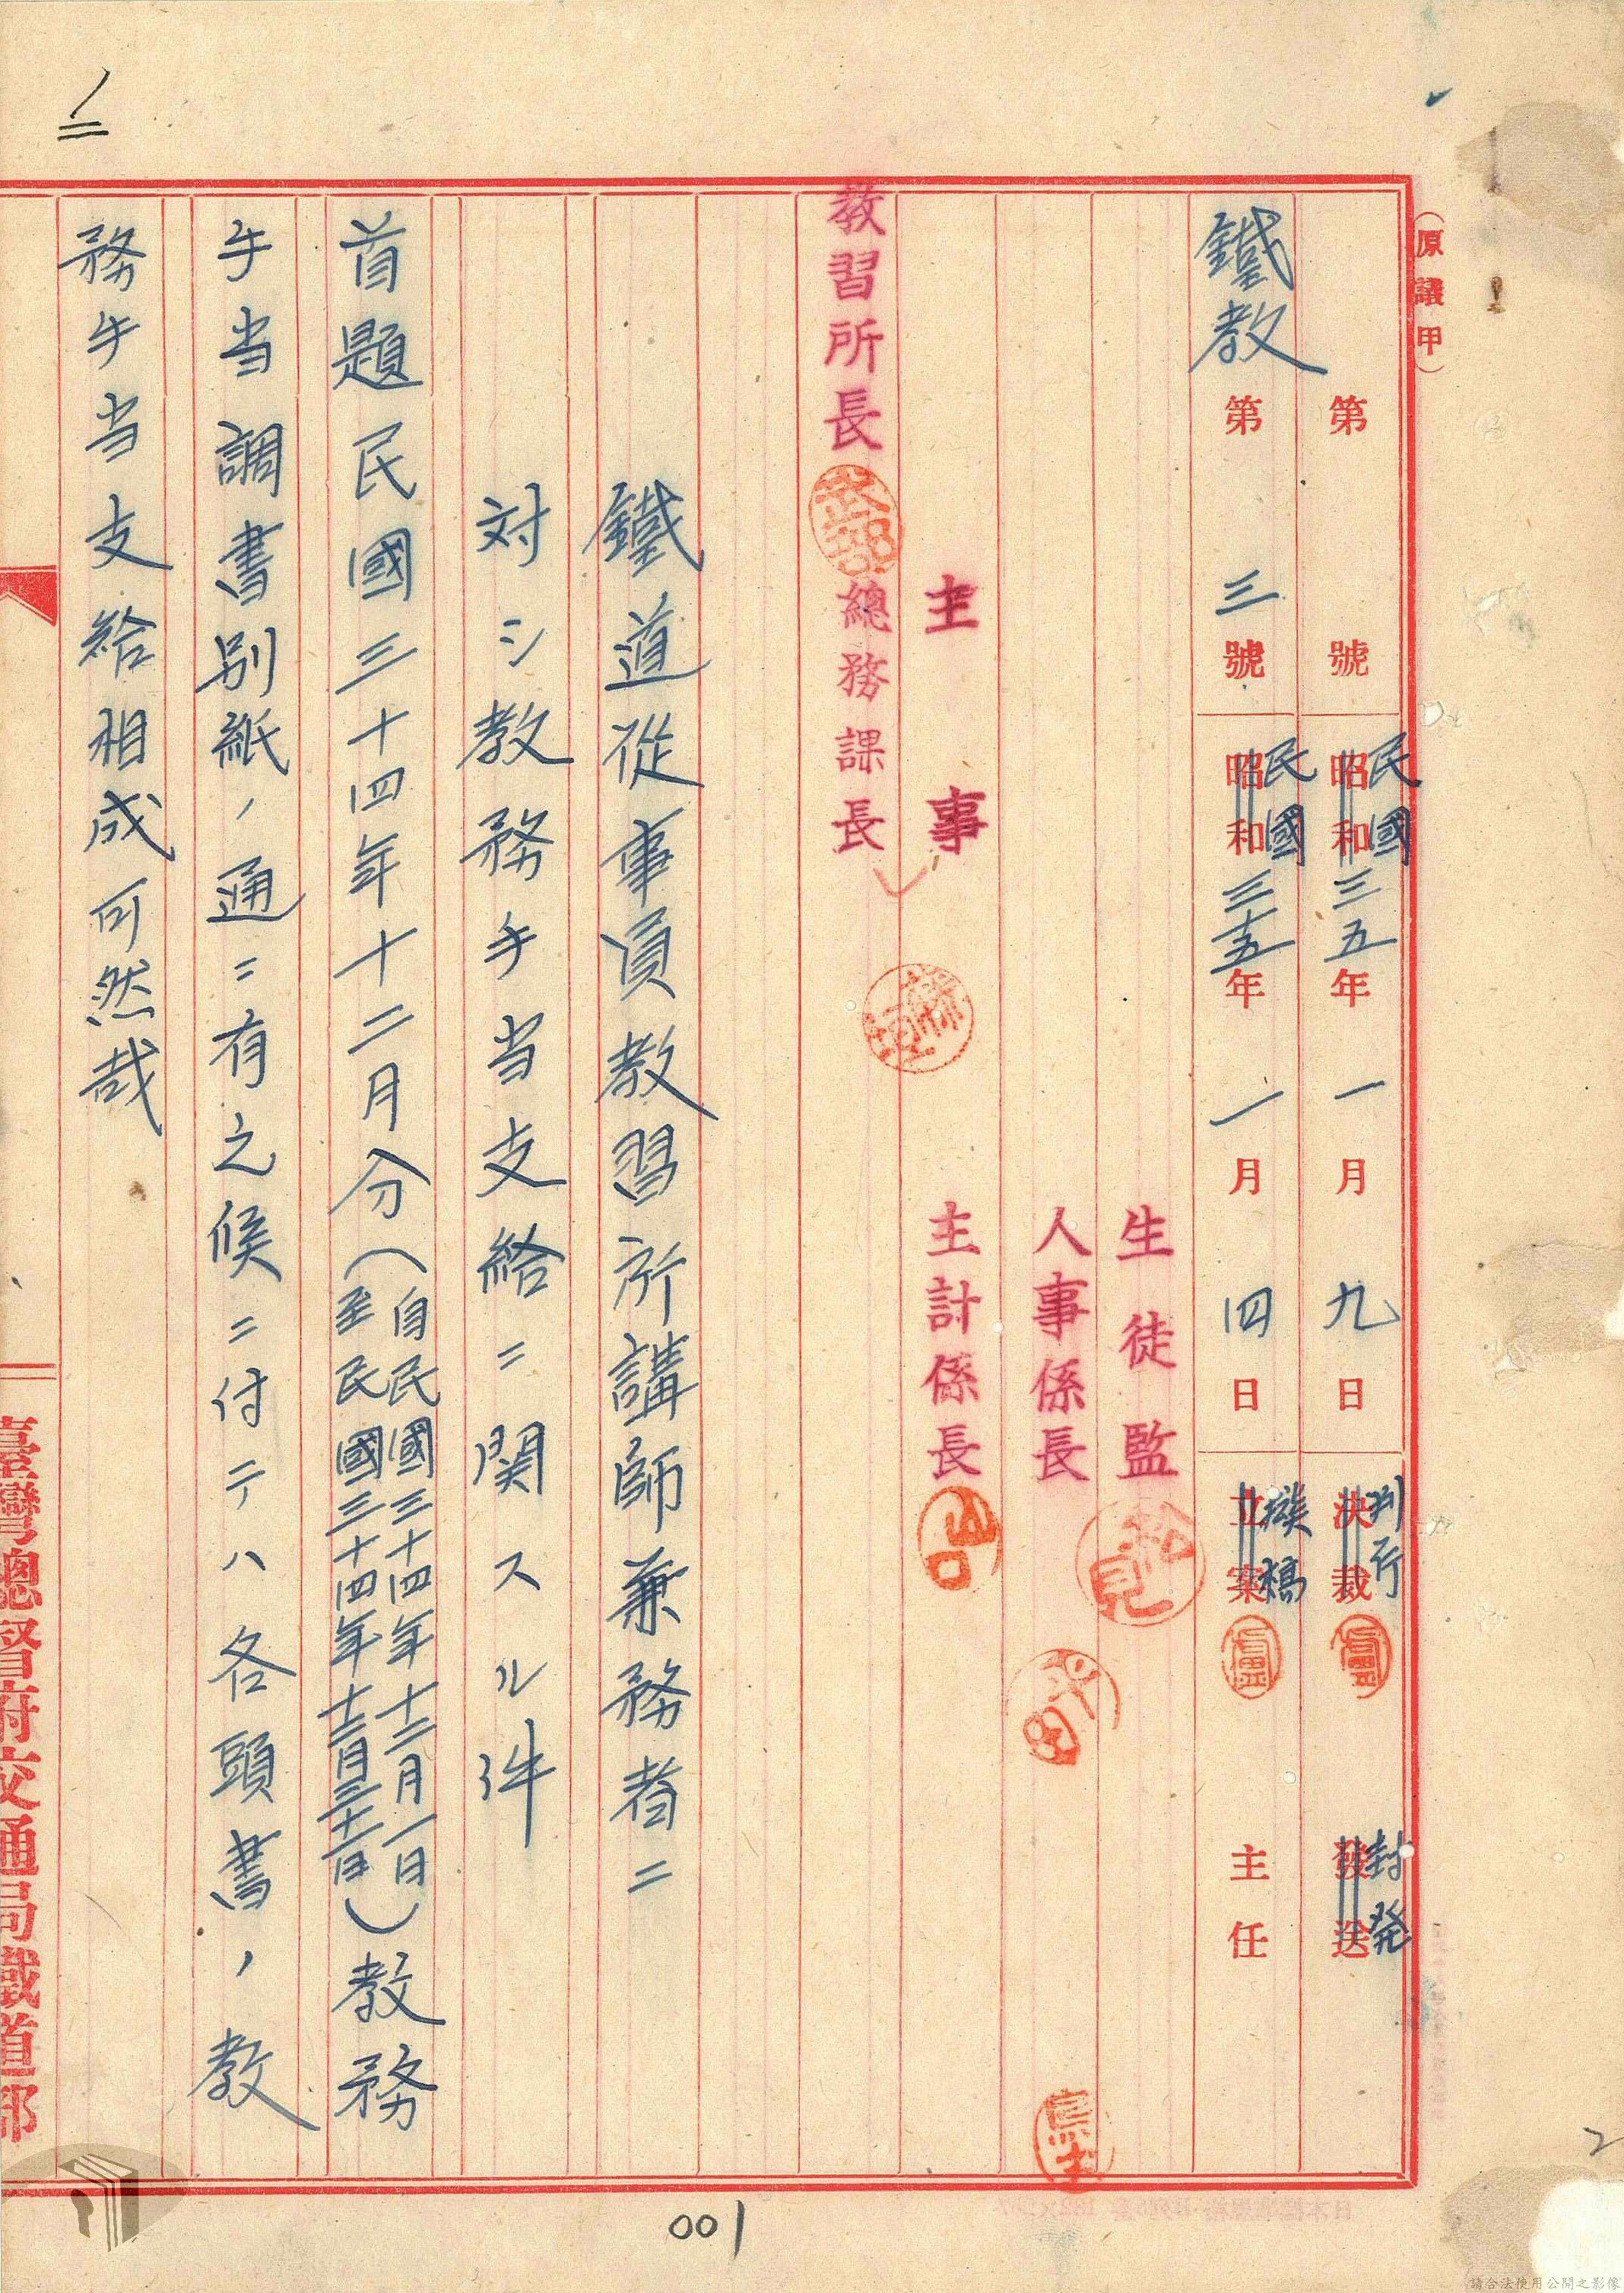 （原議甲）
第　號　昭和　民國三五年一月九日　決裁　判行　發送　封発
鐵教第三號　昭和　民國三十五年一月四日　立案　擬稿　主任
生徒監
人事係長
主事　主計係長　山口
教習所長　總務課長
鐵道從事員教習所講師兼務者ニ
対シ教務手当支給ニ関スル件
首題民國三十四年十二月分（自民國三十四年十二月一日至民國三十四年十二月三十一日）教務
手当調書別紙ノ通ニ有之候ニ付テハ各頭書ノ教
務手当支給相成可然哉
臺灣總督府交通局鐵道部
001
2
請合法使用公開之影像